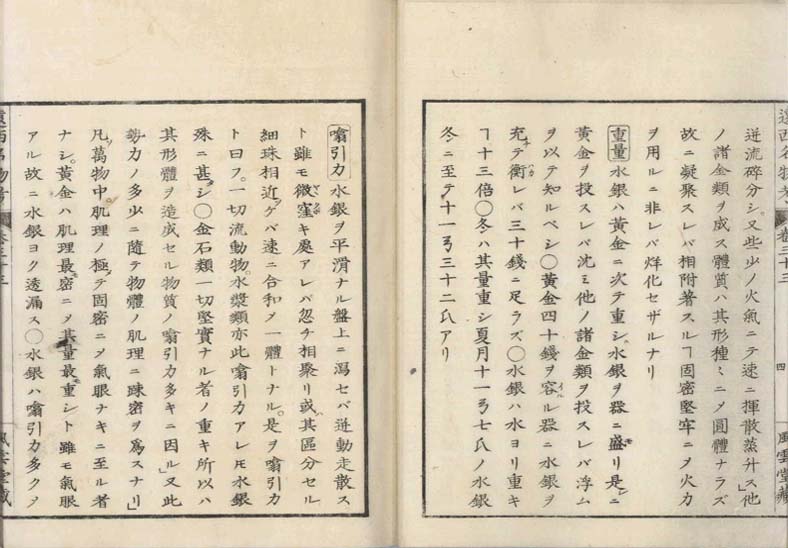 遠西名物考
卷三十三
四
風雲堂藏
迸流碎分シ又些少ノ火氣ニテ速ニ揮散蒸升ス」他
ノ諸金類ヲ成ス體質ハ其形種〻ニメ圓體ナラズ
故ニ凝聚スレバ相附著スルヿ固密堅牢ニメ火力
ヲ用ルニ非レバ烊化セザルナリ
重量 水銀ハ黄金ニ次テ重シ水銀ヲ器ニ盛リ是ニ
黄金ヲ投スレバ沈ミ他ノ諸金類ヲ投スレバ浮ム
ヲ以テ知ルベシ〇黄金四十錢ヲ容ル器ニ水銀ヲ
充テ衡レバ三十錢ニ足ラズ〇水銀ハ水ヨリ重キ
ヿ十三倍〇冬ハ其量重シ夏月十一弓七氏ノ水銀
冬ニ至テ十一弓三十二氏アリ
噏引力 水銀ヲ平滑ナル盤上ニ瀉セバ迸動走散ス
ト雖モ微窪キ處アレバ忽チ相聚リ或ハ其區分セル
細珠相近ゲバ速ニ合和メ一體トナル。是ヲ噏引力
ト曰フ。一切流動物。水漿類亦此噏引力アレ𪜈水銀
殊ニ甚シ〇金石類一切堅實ナル者ノ重キ所以ハ
其形體ヲ造成セル物質ノ噏引力多キニ因ル」又此
勢力ノ多少ニ隨テ物體ノ肌理ニ踈密ヲ爲スナリ」
凡萬物中。肌理ノ極テ固密ニメ氣眼ナキニ至ル者
ナシ。黄金ハ肌理最密ニメ其量最重シト雖モ氣眼
アル故ニ水銀ヨク透漏ス〇水銀ハ噏引力多クメ
遠西名物考
卷三十三
風雲堂藏